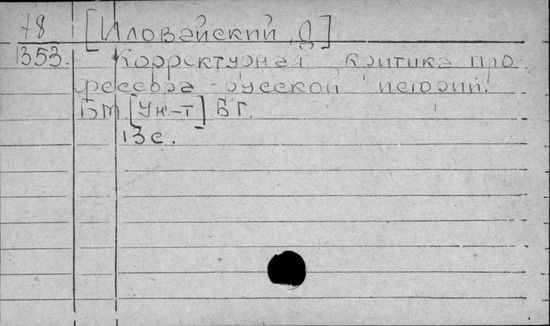 78 [Иловайский, Д]
1353. Корректурная критика про-
фессора русской истории.
Бм. [Ун-т] БГ.
13 с.